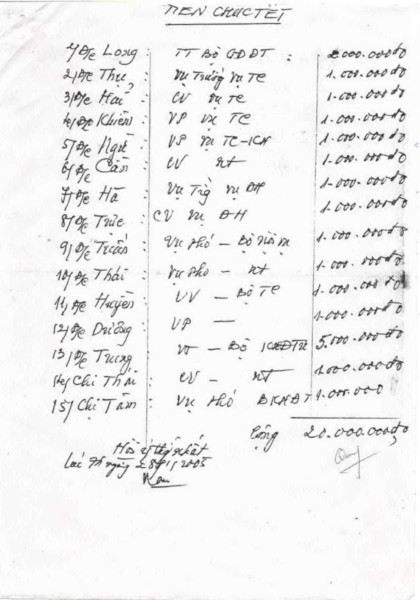 TIỀN CHÚC TẾT
1/ Đ/c Long : TT Bộ GDĐT : 2.000.000đ
2/ Đ/c Thự : Vụ Trưởng Vụ TC 1.000.000đ
3/ Đ/c Hải : CV Vụ TC 1.000.000đ
4/ Đ/c Khiên : VP Vụ TC 1.000.000đ
5/ Đ/c Ngữ : VP Vụ TC-KH 1.000.000đ
6/ Đ/c Cần : CV nt 1.000.000đ
7/ Đ/c Hà : Vụ Trg Vụ ĐH 1.000.000đ
8/ Đ/c Trúc : CV Vụ ĐH 1.000.000đ
9/ Đ/c Tuấn : Vụ Phó - Bộ Nội Vụ 1.000.000đ
10/ Đ/c Thái : Vụ Phó - nt 1.000.000đ
11/ Đ/c Huyền : CV - Bộ TC 1.000.000đ
12/ Đ/c Dương : VP — 1.000.000đ
13/ Đ/c Trung - Bộ KHĐT 5.000.000đ
14/ Chị Thái : CV - nt 1.000.000đ
15/ Chị Tâm : Vụ Phó BKHĐT 1.000.000
Cộng 20.000.000đ
2005